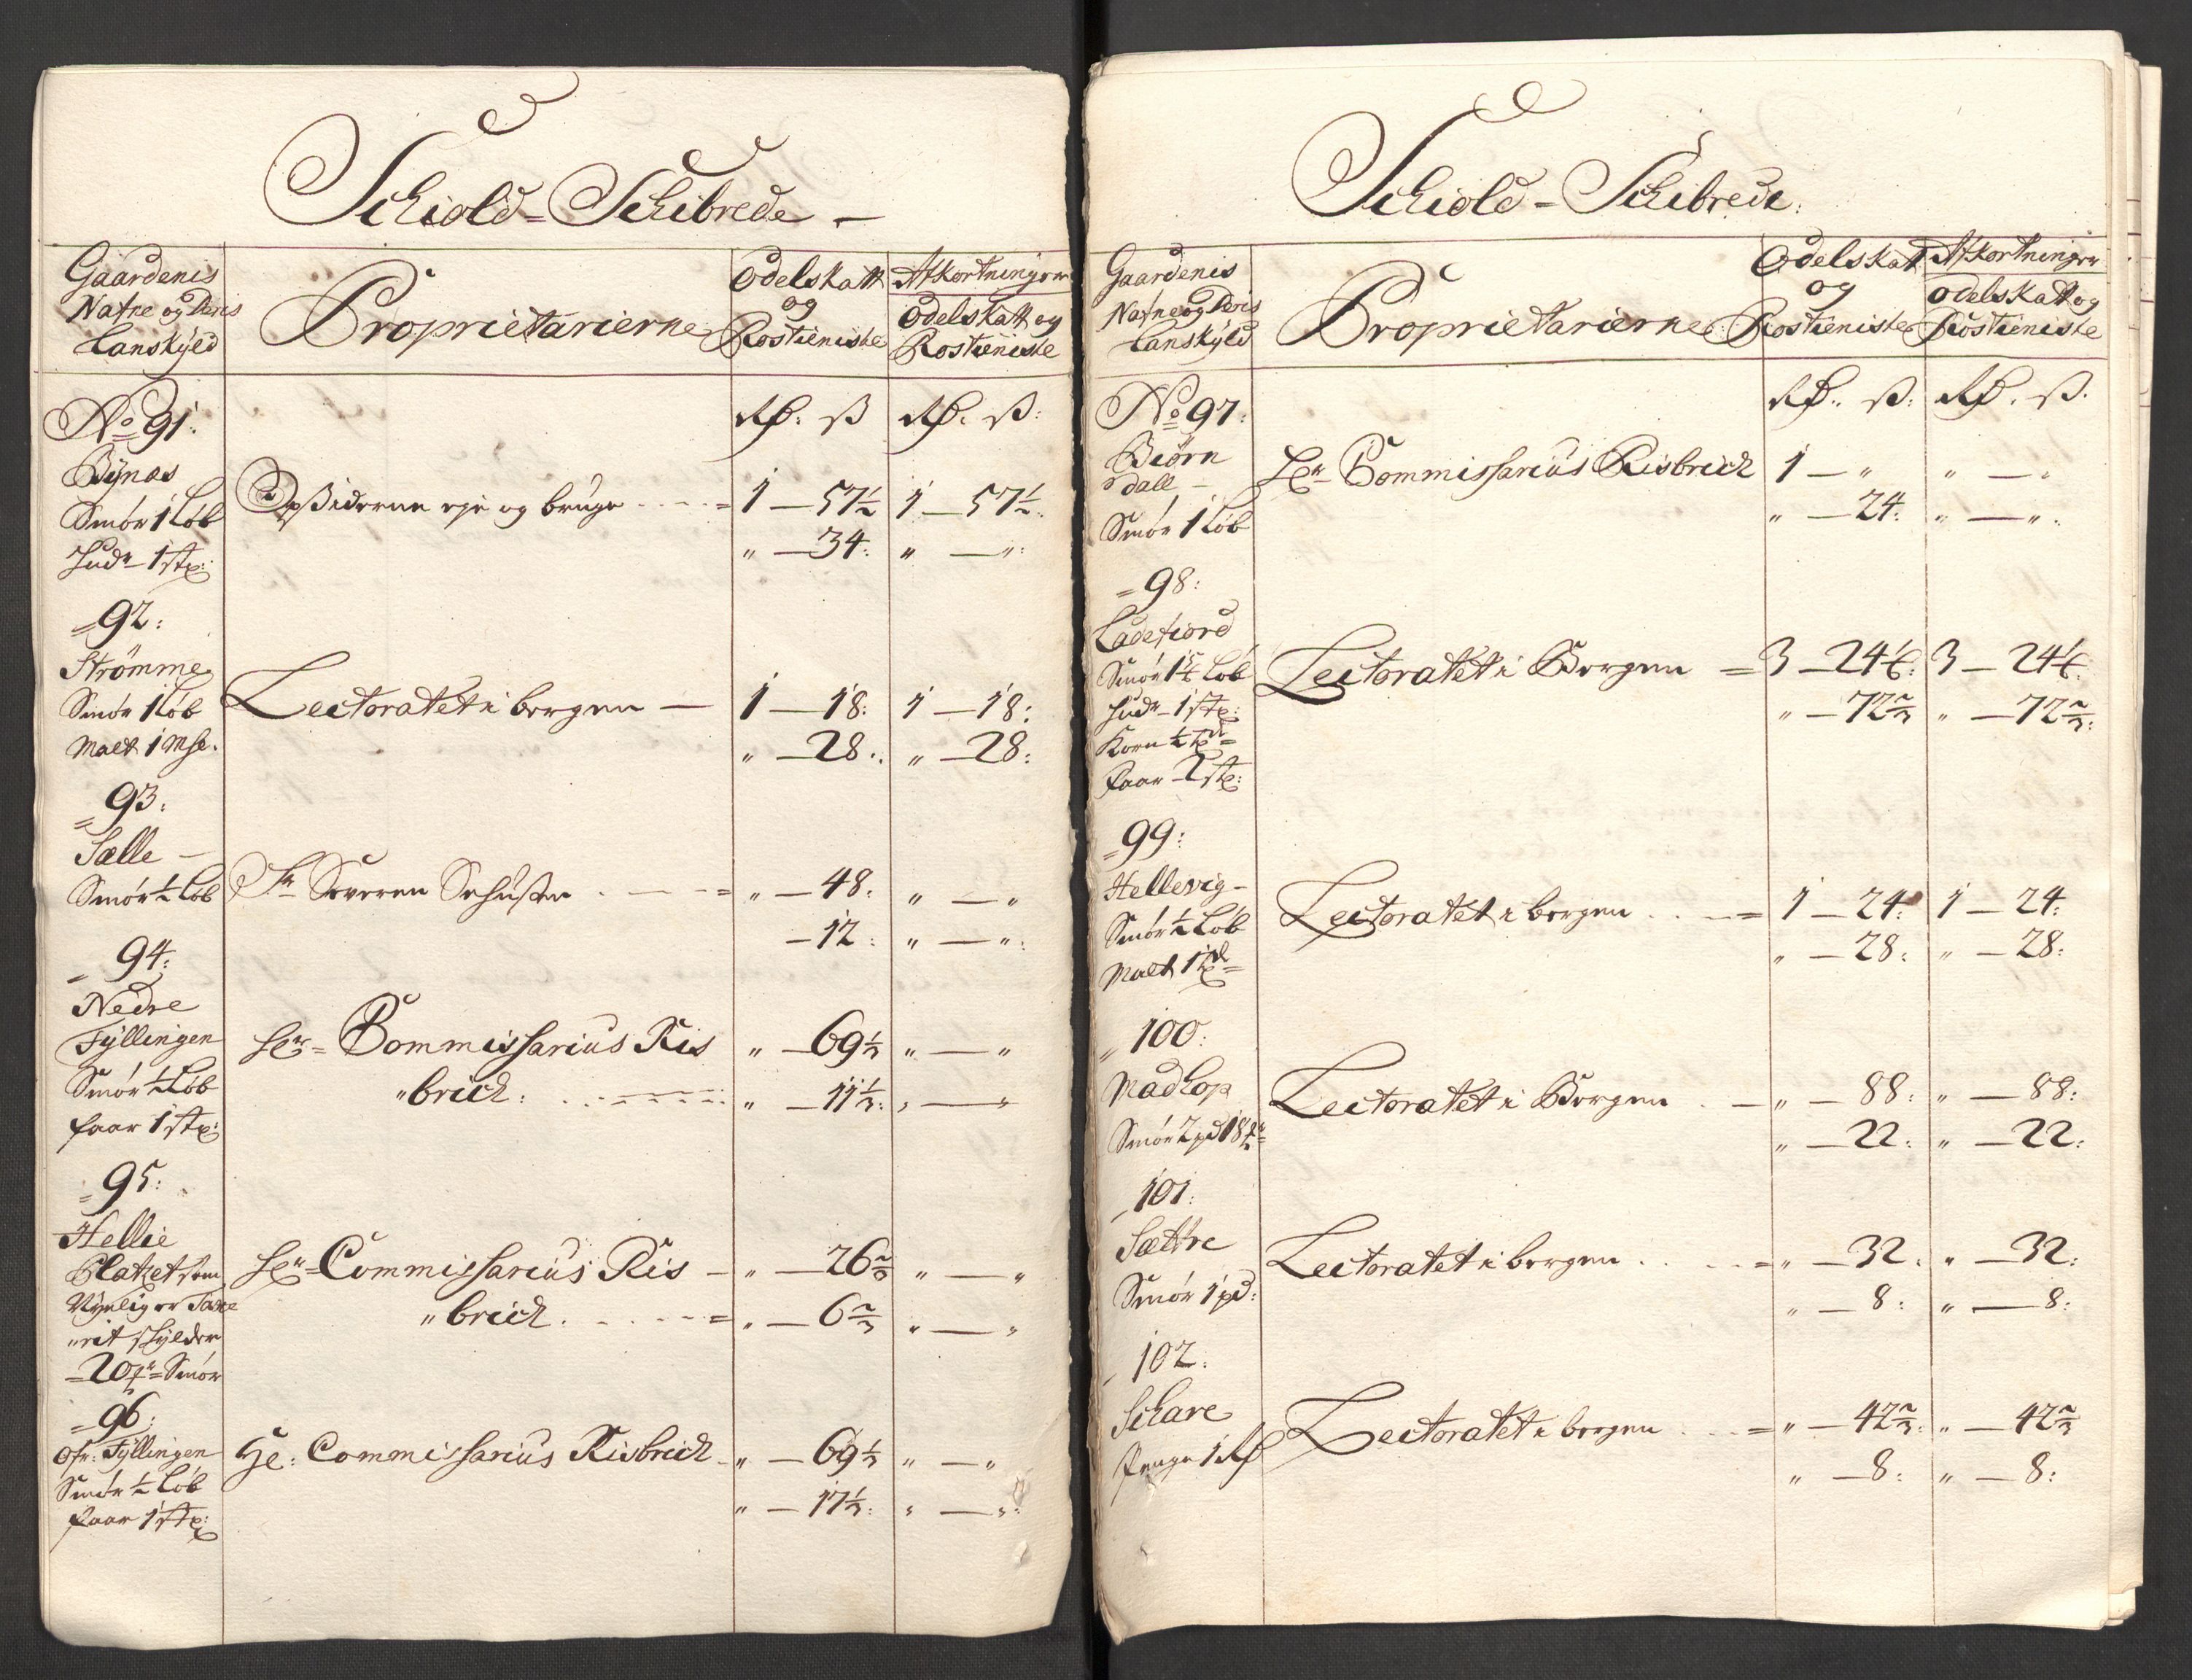 Schiold-Schibrede
Gaardenis
Nafne og deris
Lanskÿld
Proprietarierne
Odelskatt
og
Rostieniste
Afkortninger
Odelskatt og
Rostieniste
Rd. ß Rd. ß:
No 91:
Bÿnæs
Smör 1 Löb
Hudr 1 stk:
Opsiderne eje og bruge - - - = 1 — 57½ 1 — 57½
" — 34: " — ":
= 92:
Strömme
Smör 1 Löb
Malt 1 Mse.
Lectoratet i bergen — 1 — 18: 1 — 18:
" — 28: " — 28:
= 93:
Sælle —
Smör ½ Löb
Sr Severen Sehusen - - = " — 48: " — "
— 12: " — ":
= 94:
Nedre
Fÿllingen
Smör ½ Löb
faar 1 stk:
Hr = Commissarius Ris " — 69⅓ " — "
"brich: " — 11⅓: " — "
= 95:
Hellie
Platzet som
Nÿelig er Taxe
"rit skÿlder
— 20 Smör
Hr = Commissarius Ris — " — 26⅔ " — "
"brich. - - - = " — 6⅔ " — "
= 96:
Ofr: Fÿllingen
Smör ½ Löb
Faar 1 stk:
Hr: Commissarius Risbrich - " — 69⅓ " — "
" — 17⅓: " — ":
Schiold-Schibrede:
Gaardenis
Nafne og deris
Lanskÿld
Proprietarierne
Odelskatt
og
Rostieniste
Afkortninger
Odelskatt og
Rostieniste
Rd. ß: Rd. ß.
No 97:
Biörn
dall —
Smör 1 Löb
Hr Commissarius Risbrich 1 — " " — "
" — 24: " — ":
= 98:
Ladefiord
Smör Löb
Hudr 1 stk:
Korn
Faar 2 stk:
Lectoratet i Bergen = 3 — 24 3 — 24
" — 72⅔ " — 72⅔:
= 99:
Hellevig —
Smör ½ Löb
Malt 1
Lectoratet i bergen - - = 1 — 24: 1 — 24:
" — 28: " — 28:
" 100:
Madhop
Smör 2 pd 18
Lectoratet i Bergen - — " — 88: " — 88:
" — 22: " — 22:
— 101:
Sættre
Smör 1 pd:
Lectoratet i bergen - - = " — 32: " — 32:
" — 8: " — 8:
— 102:
Schare
Penge 1 Rd
Lectoratet i bergen - - = " — 42⅔: " — 42⅔
" — 8: " — 8: